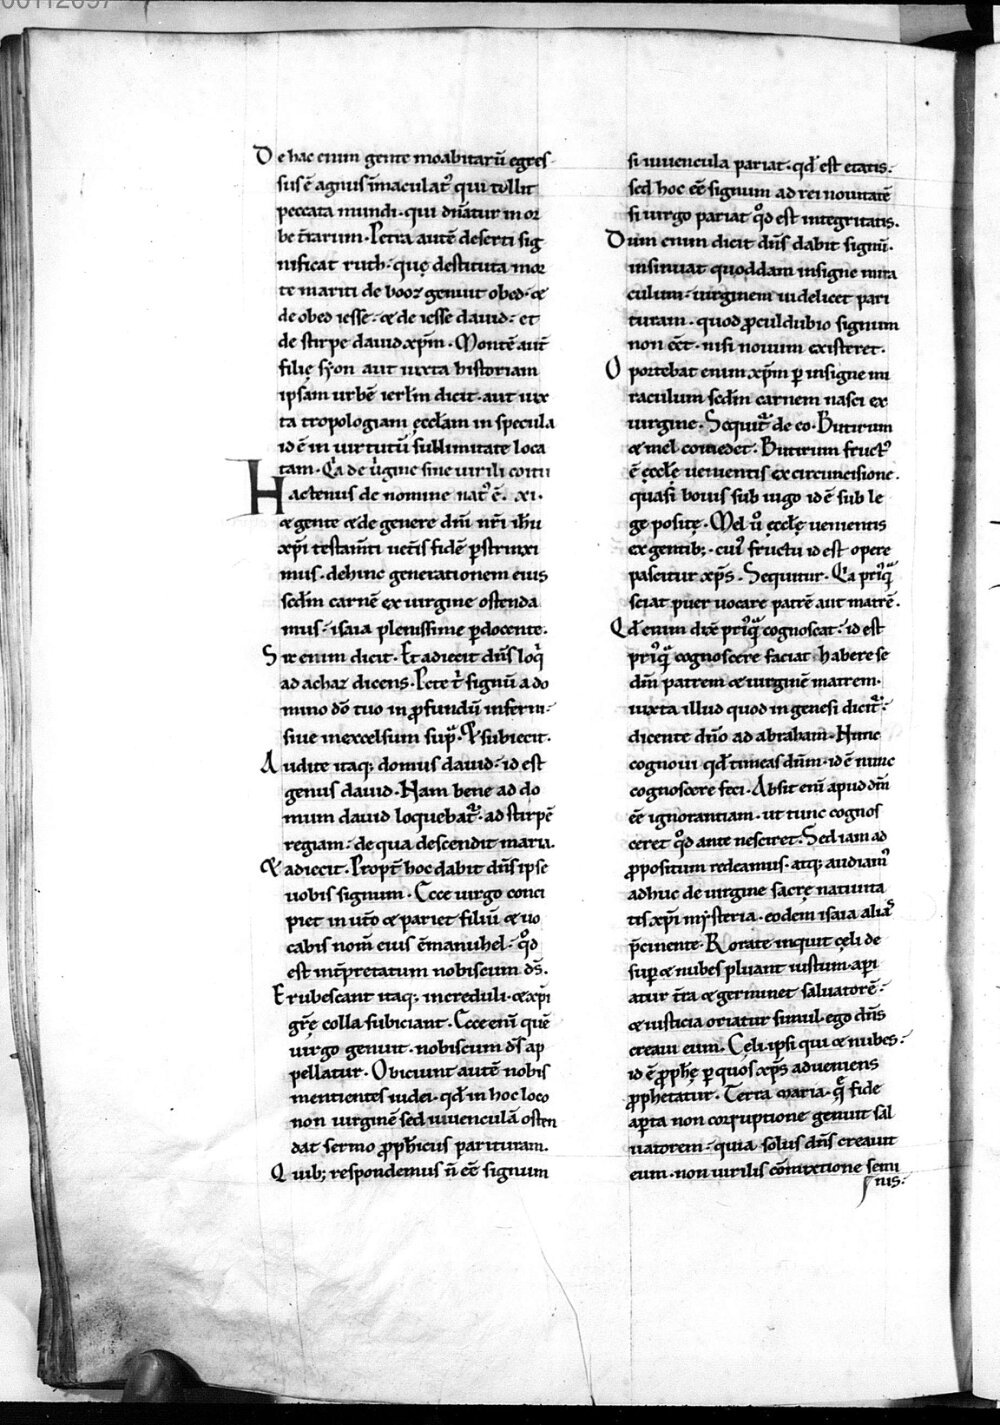 De hac enim gente moabitarũ egres
sus ẽ agnus ĩmaculat᷒ qui tollit
peccata mundi · qui dñatur in or
be t̃rarum · Petra autẽ deserti sig
nificat ruth · quę destituta mor
te mariti de booz genuit obed · &
de obed iesse · & de iesse dauid · et
de stirpe dauid xp̃m · Montẽ aut̃
filię syon aut iuxta historiam
ipsam urbẽ ierl̃m dicit · aut iux
ta tropologiam ęccl̃am in specula
id ẽ in uirtutũ sullimitate loca
tam · Q̃a de uĩgine sine uirili coitu
Hactenus de nomine nat᷒ ẽ · xi ·
& gente & de genere dñi nr̃i ihũ
xp̃i testam̃ti uet̃is fidẽ p̱strinxi
mus · dehinc generationem eius
scd̃m carnẽ ex uirgine ostenda
mus · isaia plenissime p̱docente ·
Sic enim dicit · Et adiecit dñs loq̃i
ad achaz dicens · Pete t̃ signũ a do
mino dõ tuo in ꝓfundũ inferni ·
siue in excelsum sup̱ª · & subiecit ·
Audite itaq; domus dauid · id est
genus dauid · Nam bene ad do
mum dauid loquebat᷑ · ad stirpẽ
regiam · de qua descendit maria ·
& adiecit · Propt̃ hoc dabit dñs ipse
uobis signum · Ecce uirgo conci
piet in ut̃o & pariet filiũ & uo
cabis nom̃ eius ẽmanuhel · qͦd
est int̃pretatum nobiscum d̃s ·
Erubescant itaq; increduli · & xp̃i
gr̃ę colla subiciant · Ecce eni᷒ quẽ
uirgo genuit · nobiscum d̃s ap
pellatur · Obiciunt autẽ nobis
mentientes iudei · qd̃ in hoc loco
non uirginẽ sed iuuenculã osten
dat sermo ꝓph̃icus parituram ·
Quib; respondemus ñ eẽ signum
si iuuencula pariat · qd̃ est etatis ·
sed hoc eẽ signum ad rei nouitatẽ
si uirgo pariat qͦd est integritatis ·
Dum enim dicit dñs dabit signũ ·
insinuat quoddam insigne mira
culum · uirginem uidelicet pari
turam · quod ꝓculdubio signum
non eẽt · nisi nouum existeret ·
Oportebat enim xp̃m p̱ insigne mi
raculum scd̃m carnem nasci ex
uirgine · Sequit᷑ de eo · Butirum
& mel comedet · Butirum fruct᷒
ẽ ęccl̃ę uenientis ex circuncisione ·
quasi bouis sub iugo id ẽ sub le
ge positę · Mel u̾o ęccl̃ę uenientis
ex gentib; · cui᷒ fructu id est opere
pascitur xp̃s · Sequitur · Q̃a priⁱqª
sciat puer uocare patrẽ aut matrẽ ·
Qd̃ enim dixẽ priⁱqª cognoscat · id est
priⁱqª cognoscere faciat habere se
dñm patrem & uirginẽ matrem ·
iuxta illud quod in genesi dicit᷑ ·
dicente dño ad abraham · Nunc
cognoui qd̃ timeas dñm · id ẽ nunc
cognoscere feci · Absit eni᷒ apud dñm
eẽ ignorantiam · ut tunc cognos
ceret qͦd ante nesciret · Sed iam ad
ꝓpositum redeamus · atq; audiam᷒
adhuc de uirgine sacrę natiuita
tis xp̃i mysteria · eodem isaia aliªs
p̃cinente · Rorate inquit cęli de
sup̱ & nubes pluant iustum · api
atur t̃ra & germinet saluatorẽ ·
& iusticia oriatur simul · ego dñs
creaui eum · Cęli ipsi qui & nubes ·
id ẽ ꝓph̃ę p̱ quos xp̃s adueniens
ꝓphetatur · Terra maria · quę̃ fide
ap̱ta non corruptione genuit sal
uatorem · quia solus dñs creauit
eum · non uirilis cõmixtione semi
nis ·